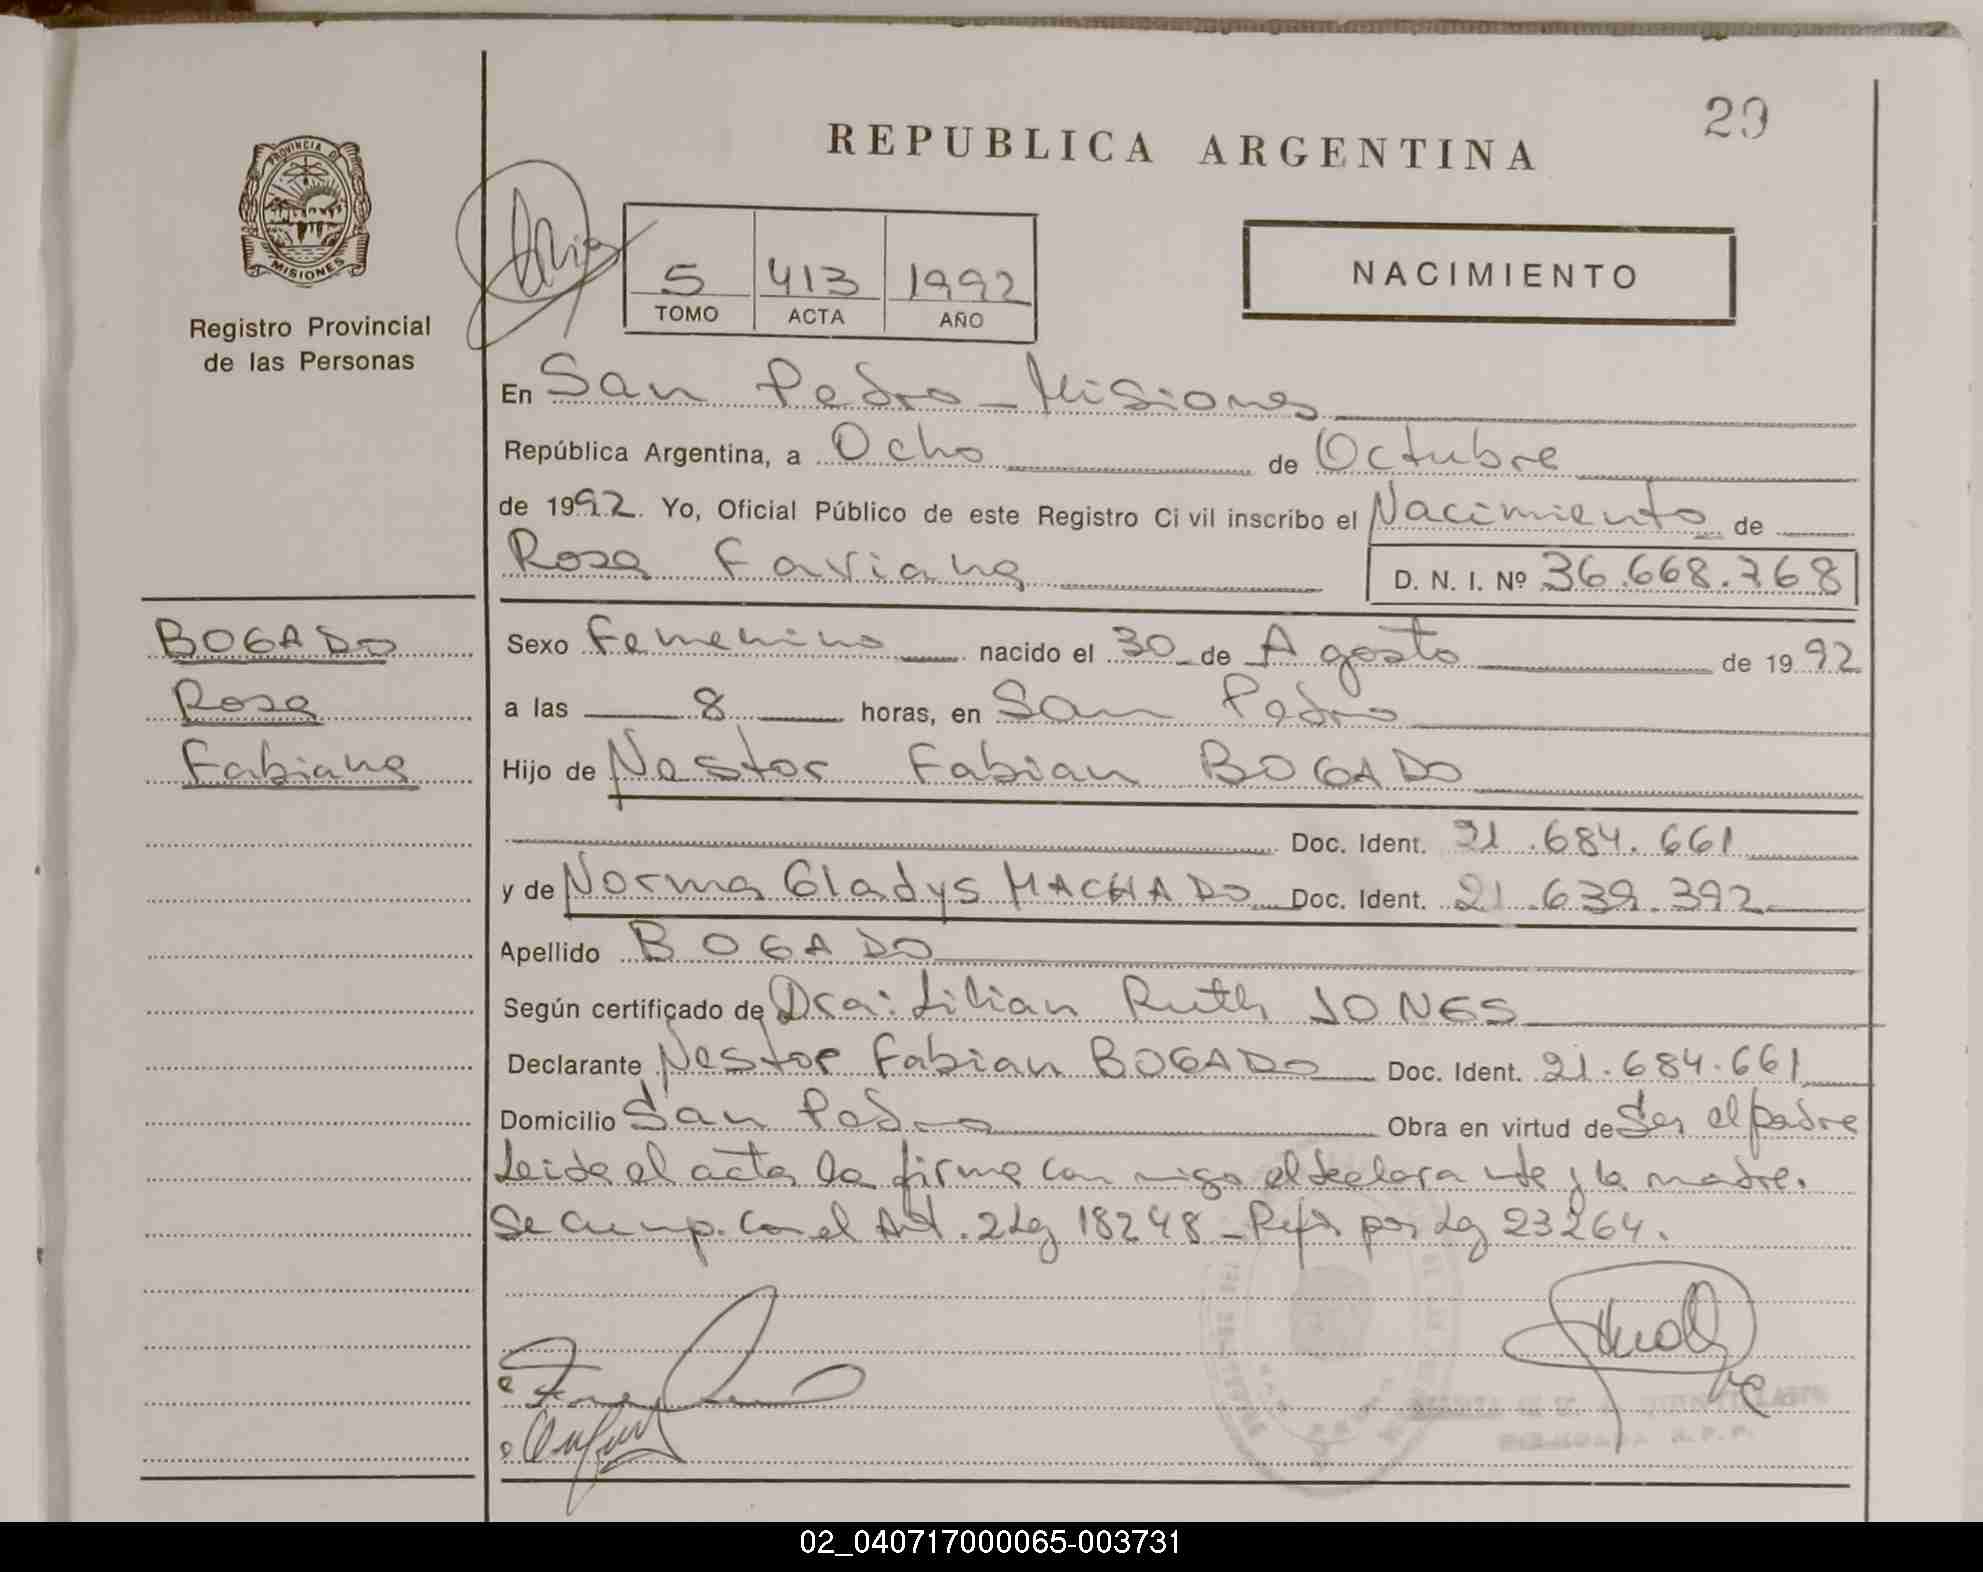 29
REPUBLICA ARGENTINA
PROVINCIA D
MISIONES
Registro Provincial
de las Personas
5 413 1992
TOMO ACTA AÑO
NACIMIENTO
En San Pedro - Misiones
República Argentina, a Ocho de Octubre
de 1992. Yo, Oficial Público de este Registro Civil inscribo el Nacimiento de
Rosa Faviana D. N. I. Nº 36.668.768
BOGADO
Rosa
Fabiana
Sexo Femenino nacido el 30 de Agosto de 1992
a las 8 horas, en San Pedro
Hijo de Nestor Fabian BOGADO
Doc. Ident. 21.684.661
y de Norma Gladys MACHADO Doc. Ident. 21.639.392
Apellido BOGADO
Según certificado de Dra: Lilian Ruth JONES
Declarante Nestor Fabian BOGADO Doc. Ident. 21.684.661
Domicilio San Pedro Obra en virtud de Ser el padre
Leida el acta la firma con migo el declarante y la madre.
Se cump. con el Art. 2 Ley 18248 - Ref. por Ley 23264.
02_040717000065-003731